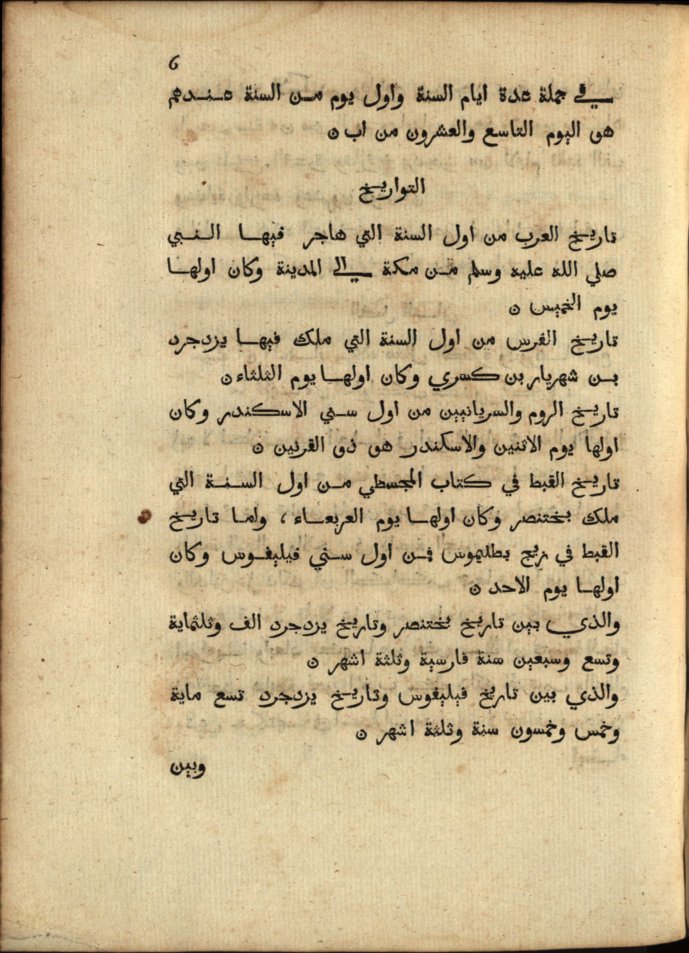 6
في جملة عدة ايام السنة واول يوم من السنة عندهم
هو اليوم التاسع والعشرون من اب ن
التواريخ
تاريخ العرب من اول السنة التي هاجر فيها النبي
صلي الله عليه وسلم من مكة الي المدينة وكان اولها
يوم الخميس ن
تاريخ الفرس من اول السنة التي ملك فيها يزدجرد
بن شهريار بن كسري وكان اولها يوم الثلثاء ن
تاريخ الروم والسريانيين من اول سني الاسكندر وكان
اولها يوم الاثنين والاسكندر هو ذو القرنين ن
تاريخ القبط في كتاب المجسطي من اول السنة التي
ملك بختنصر وكان اولها يوم العربعاء ، ولما تاريخ
القبط في زيج بطليموس فمن اول سني فيليفوس وكان
اولها يوم الاحد ن
والذي بين تاريخ بختنصر وتاريخ يزدجرد الف وثلثماية
وتسع وسبعين سنة فارسية وثلثة اشهر ن
والذي بين تاريخ فيليفوس وتاريخ يزدجرد تسع ماية
وخمس وخمسون سنة وثلثة اشهر ن
وبين